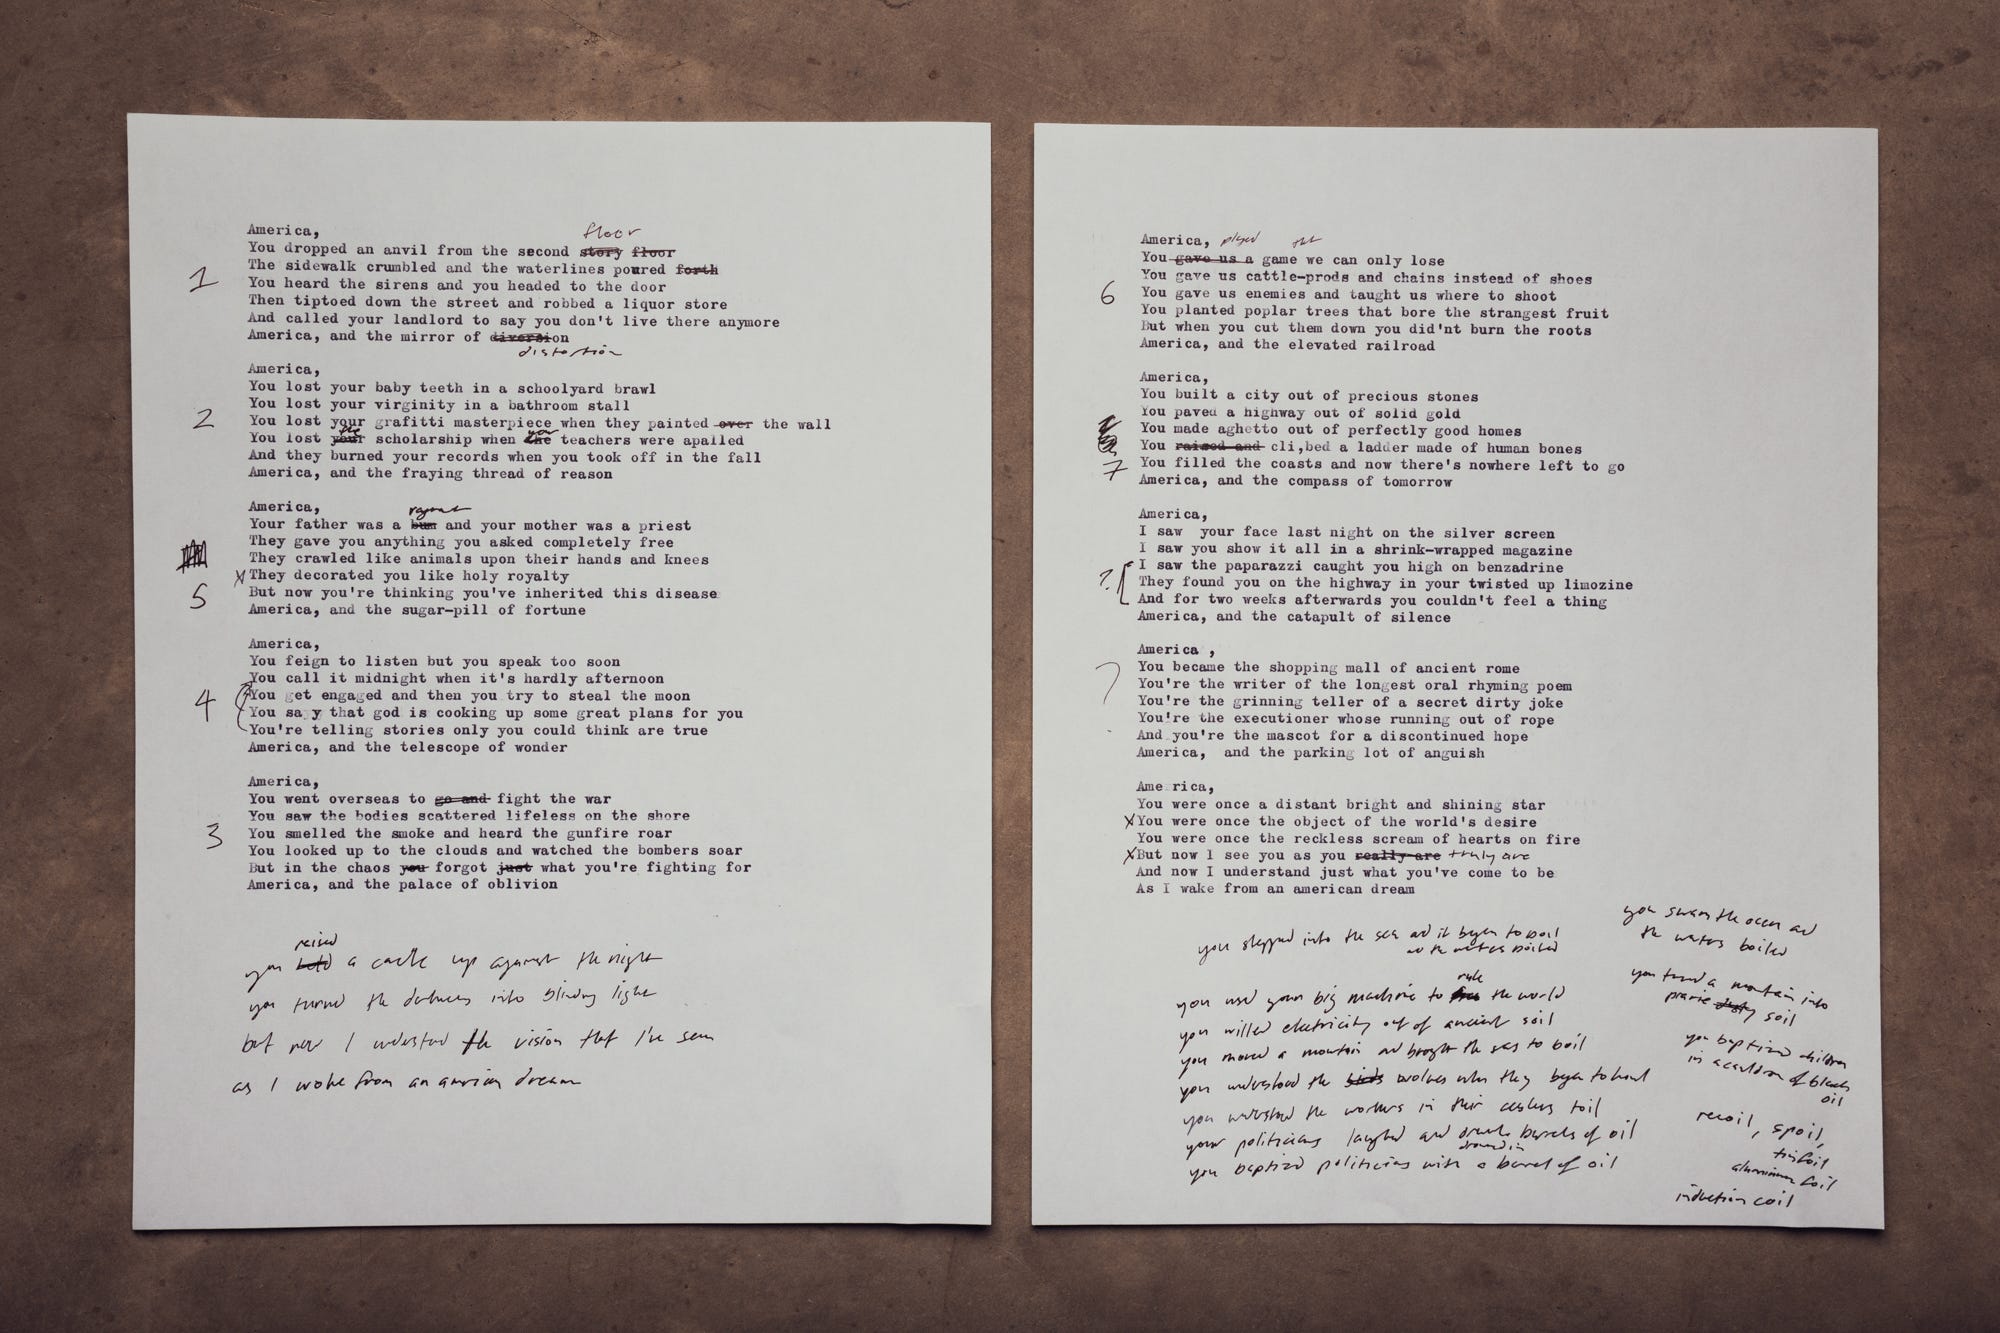 floor
America,
You dropped an anvil from the second story floor
The sidewalk crumbled and the waterlines poured forth
1
You heard the sirens and you headed to the door
Then tiptoed down the street and robbed a liquor store
And called your landlord to say you don't live there anymore
America, and the mirror of diversion
distortion
America,
You lost your baby teeth in a schoolyard brawl
You lost your virginity in a bathroom stall
2
You lost your grafitti masterpiece when they painted over the wall
the your
You lost your scholarship when the teachers were apalled
And they burned your records when you took off in the fall
America, and the fraying thread of reason
America,
Your father was a bum and your mother was a priest
They gave you anything you asked completely free
They crawled like animals upon their hands and knees
X They decorated you like holy royalty
5
But now you're thinking you've inherited this disease
America, and the sugar-pill of fortune
America,
You feign to listen but you speak too soon
You call it midnight when it's hardly afternoon
4
You get engaged and then you try to steal the moon
You say that god is cooking up some great plans for you
You're telling stories only you could think are true
America, and the telescope of wonder
America,
You went overseas to go and fight the war
You saw the bodies scattered lifeless on the shore
3
You smelled the smoke and heard the gunfire roar
You looked up to the clouds and watched the bombers soar
But in the chaos you forgot just what you're fighting for
America, and the palace of oblivion
raised
you held a castle up against the night
you turned the darkness into blinding light
but now I understand the vision that I've seen
as I woke from an american dream
played the
America,
You gave us a game we can only lose
You gave us cattle-prods and chains instead of shoes
6
You gave us enemies and taught us where to shoot
You planted poplar trees that bore the strangest fruit
But when you cut them down you did'nt burn the roots
America, and the elevated railroad
America,
You built a city out of precious stones
You paved a highway out of solid gold
You made aghetto out of perfectly good homes
You raised and cli,bed a ladder made of human bones
7
You filled the coasts and now there's nowhere left to go
America, and the compass of tomorrow
America,
I saw your face last night on the silver screen
I saw you show it all in a shrink-wrapped magazine
I saw the paparazzi caught you high on benzadrine
?
They found you on the highway in your twisted up limozine
And for two weeks afterwards you couldn't feel a thing
America, and the catapult of silence
America ,
You became the shopping mall of ancient rome
?
You're the writer of the longest oral rhyming poem
You're the grinning teller of a secret dirty joke
You're the executioner whose running out of rope
And you're the mascot for a discontinued hope
America, and the parking lot of anguish
Ame rica,
You were once a distant bright and shining star
X You were once the object of the world's desire
You were once the reckless scream of hearts on fire
X But now I see you as you really are truly are
And now I understand just what you've come to be
As I wake from an american dream
you stepped into the sea and it began to boil
as the waters boiled
rule
you used your big machine to the world
you willed electricity out of ancient soil
you moved a mountain and brought the seas to boil
you understood the kids wolves when they began to howl
you understood the workers in their ceaseless toil
your politicians laughed and drank barrels of oil
drowned in
you baptized politicians with a barrel of oil
you swam the ocean and
the waters boiled
you turned a mountain into
prairie dusty soil
you baptized children
in a cauldron of black
oil
recoil, spoil,
tinfoil
aluminum foil
induction coil